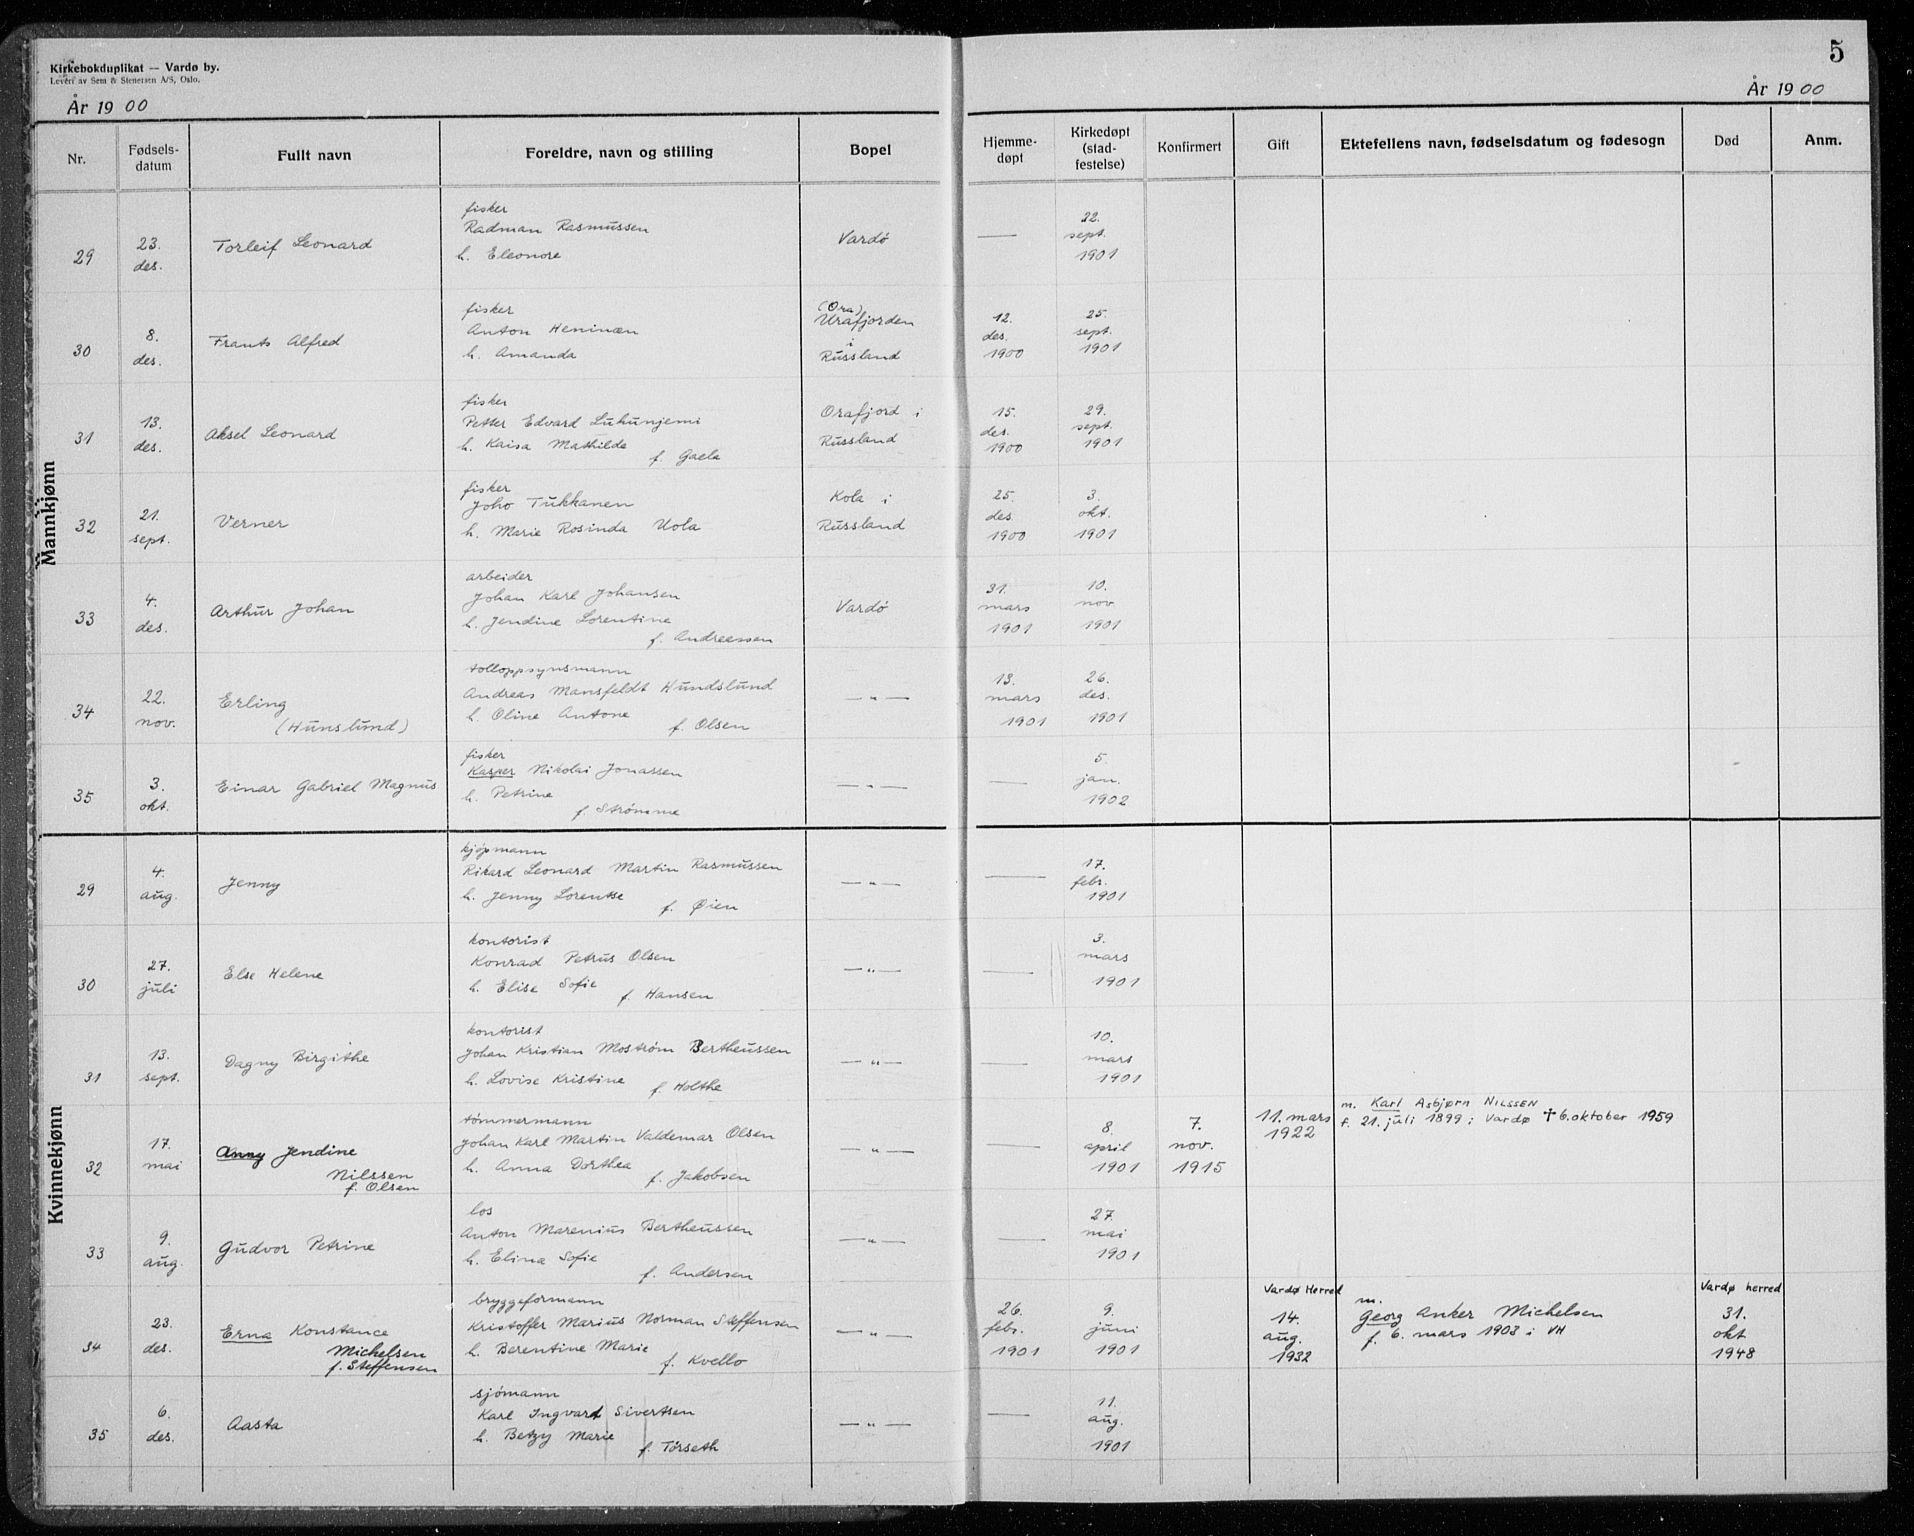 Kirkebokduplikat — Vardø by.
Levert av Sem & Stenersen A/S, Oslo.
År 1900
5
År 1900
Nr. Fødsels-datum Fullt navn Foreldre, navn og stilling Bopel Hjemme-døpt Kirkedøpt (stad-festelse) Konfirmert Gift Ektefellens navn, fødselsdatum og fødesogn Død Anm.
Mannkjønn
fisker
29 23. des. Torleif Leonard Radman Rasmussen Vardø — 22. sept. 1901
h. Eleonore
fisker
30 8. des. Frants Alfred Anton Heninæn (Ora) Urafjorden i Russland 12. des. 1900 25. sept. 1901
h. Amanda
fisker
31 13. des. Aksel Leonard Petter Edvard Luhunjemi Orafjord i Russland 15. des. 1900 29. sept. 1901
h. Kaisa Mathilde
f. Gaela
fisker
32 21. sept. Verner Joho Tukkanen Kola i Russland 25. des. 1900 3. okt. 1901
h. Marie Rosinda Uola
arbeider
33 4. des. Arthur Johan Johan Karl Johansen Vardø 31. mars 1901 10. nov 1901
h. Jendine Lorentine
f. Andreassen
tolloppsynsmann
34 22. nov. Erling (Hunslund) Andreas Mansfeldt Hundslund — " — 13. mars 1901 26. des. 1901
h. Oline Antone
f. Olsen
fisker
35 3. okt. Einar Gabriel Magnus Kasper Nikolai Jonassen — " — — 5. jan. 1902
h. Petrine
f. Strømme
Kvinnekjønn
kjøpmann
29 4. aug. Jenny Rikard Leonard Martin Rasmussen — " — — 17. febr. 1901
h. Jenny Lorentse
f. Øien
kontorist
30 27. juli Else Helene Konrad Petrus Olsen — " — — 3. mars 1901
h. Elise Sofie
f. Hansen
kontorist
31 13. sept. Dagny Birgithe Johan Kristian Moström Bertheussen — " — — 10. mars 1901
h. Lovise Kristine
f. Holthe
tømmermann
32 17. mai Anny Jendine Nilssen f. Olsen Johan Karl Martin Valdemar Olsen — " — — 8. april 1901 7. nov. 1915 11. mars 1922 m. Karl Asbjørn NILSSEN
f. 21. juli 1899 i Vardø † 6. oktober 1959
h. Anna Dorthea
f. Jakobsen
los
33 9. aug. Gudvor Petrine Anton Marenius Bertheussen — " — — 27. mai 1901
h. Elina Sofie
f. Andersen
bryggeformann
34 23. des. Erna Konstance Michelsen f. Steffensen Kristoffer Marius Norman Steffensen — " — 26. febr. 1901 9. juni 1901 Vardø Herred 14. aug. 1932 m. Georg Anker Michelsen
f. 6. mars 1903 i VH Vardø herred 31. okt 1948
h. Berentine Marie
f. Kvello
sjømann
35 6. des. Aasta Karl Ingvart Sivertsen — " — — 11. aug. 1901
h. Betzy Marie
f. Tørseth